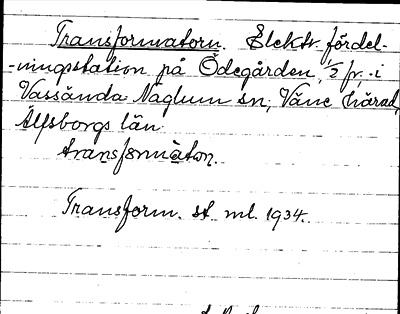 Transformatorn. Elektr. fördel-
-ningsstation på Ödegården, 1/2 fr. i
Vassända Naglum sn, Väne härad,
Älfsborgs län.
transformàton.
Transform. st ml. 1934.